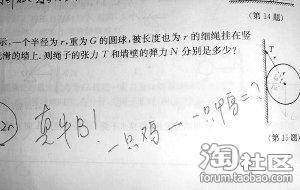 (第 14 题)
示,一个半径为 r,重为 G 的圆球,被长度也为 r 的细绳挂在竖
光滑的墙上.则绳子的张力 T 和墙壁的弹力 N 分别是多少?
真牛B!
一只鸡一一只鸭=?
(第 15 题)
淘社区
forum.taobao.com